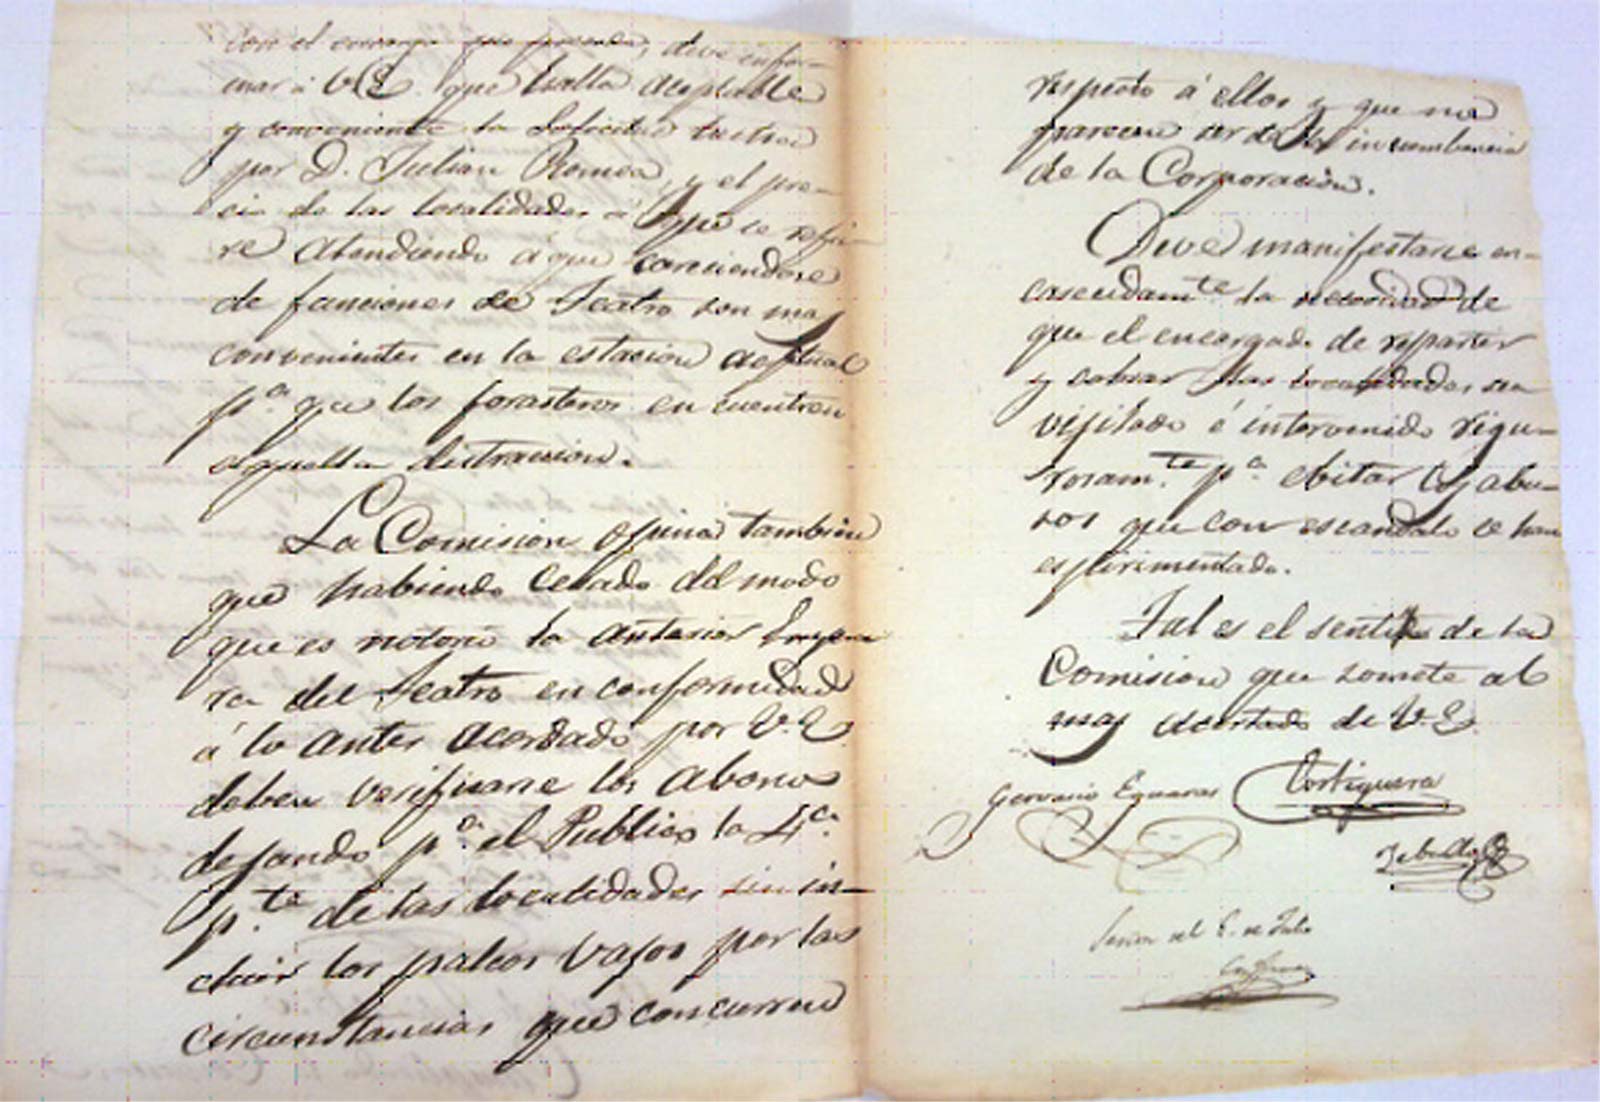 con el encargo que precede, deve infor-
mar á V.E. que halla aceptable
y conveniente la Solicitud
por D. Julian Romea, y el pre-
cio de las localidades á que se refie-
re atendiendo á que careciendose
de funciones de Teatro son mas
convenientes en la estacion actual
p.ª que los forasteros encuentren
aquella distraccion.
La Comision opina tambien
que habiendo cesado del modo
que es notorio la anterior Empre
sa del Teatro en conformidad
á lo antes acordado por V.E.
deben verificarse los abonos
dejando p.ª el Publico la 4.ª
p.te de las localidades sin in-
cluir los palcos vajos por las
circunstancias que concurren
respecto á ellos y que no
parecen ser de la incumbencia
de la Corporacion.
Deve manifestarse en-
carecidam.te la necesidad de
que el encargado de repartir
y cobrar las localidades sea
vijilado é intervenido rigu-
rosam.te p.ª ebitar abu-
sos que con escandalo se han
esperimentado.
Tal es el sentir de la
Comision que somete al
mas acertado de V.E.
Gervasio Eguaras Cortiguera
Sesion del de Julio